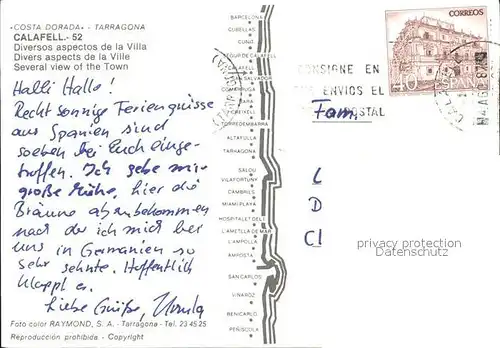 "COSTA DORADA" - TARRAGONA
CALAFELL.- 52
Diversos aspectos de la Villa
Divers aspects de la Ville
Several view of the Town
Halli Hallo!
Recht sonnige Feriengrüsse
aus Spanien sind
soeben bei Euch einge-
troffen. Ich gebe mir
große Mühe, hier die
Bräune abzubekommen
nach der ich mich bei
uns in Germanien so
sehr sehnte. Hoffentlich
klappt es.
Liebe Grüße, Ursula
Foto color RAYMOND, S. A. - Tarragona - Tel. 23 45 25
Reproducción prohibida - Copyright
BARCELONA
CUBELLAS
CUNIT
SEGUR DE CALAFELL
CALAFELL
SALVADOR
COMARRUGA
BARA
CREIXELL
TORREDEMBARRA
ALTAFULLA
TARRAGONA
SALOU
VILAFORTUNY
CAMBRILS
MIAMI PLAYA
HOSPITALET DEL I.
L'AMETLLA DE MAR
L'AMPOLLA
AMPOSTA
SAN CARLOS
VINAROZ
BENICARLO
PEÑISCOLA
CORREOS
40
CONSIGNE EN
ENVIOS EL
POSTAL
Fam.
L
D
Cl
privacy protection
Datenschutz